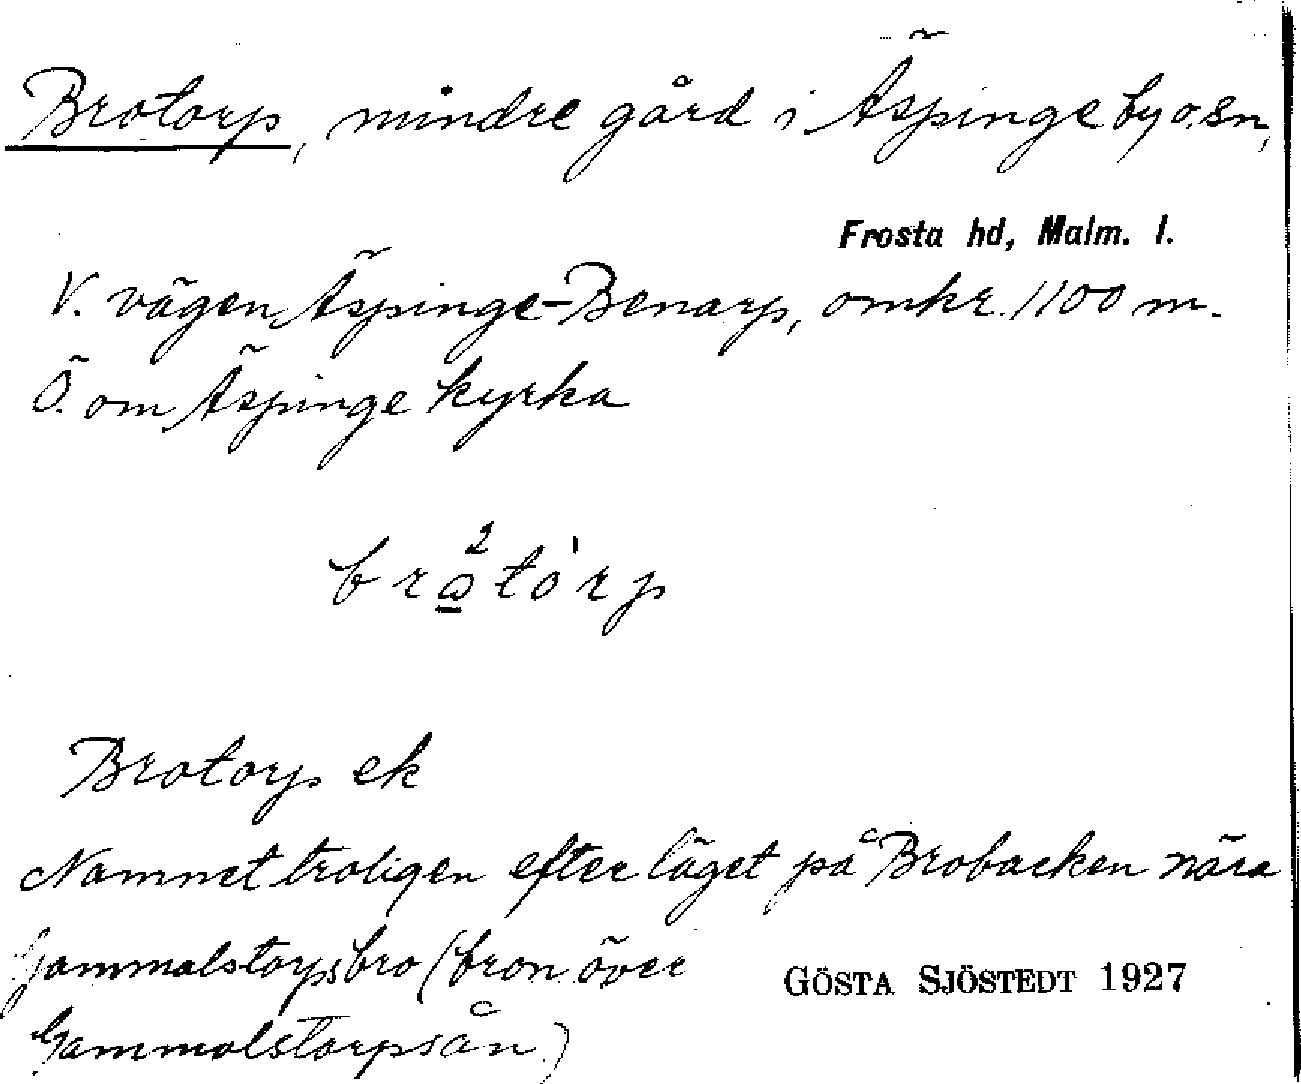 Brotorp, mindre gård i Äspinge by o. sn,
Frosta hd, Malm. l.
V. vägen Äspinge-Benarp, omkr. 1100 m.
Ö. om Äspinge kyrka
Brotorp ek
Namnet troligen efter läget på Brobacken nära
Gammalstorpsbro (bron över
GÖSTA SJÖSTEDT 1927
Gammalstorpsån)